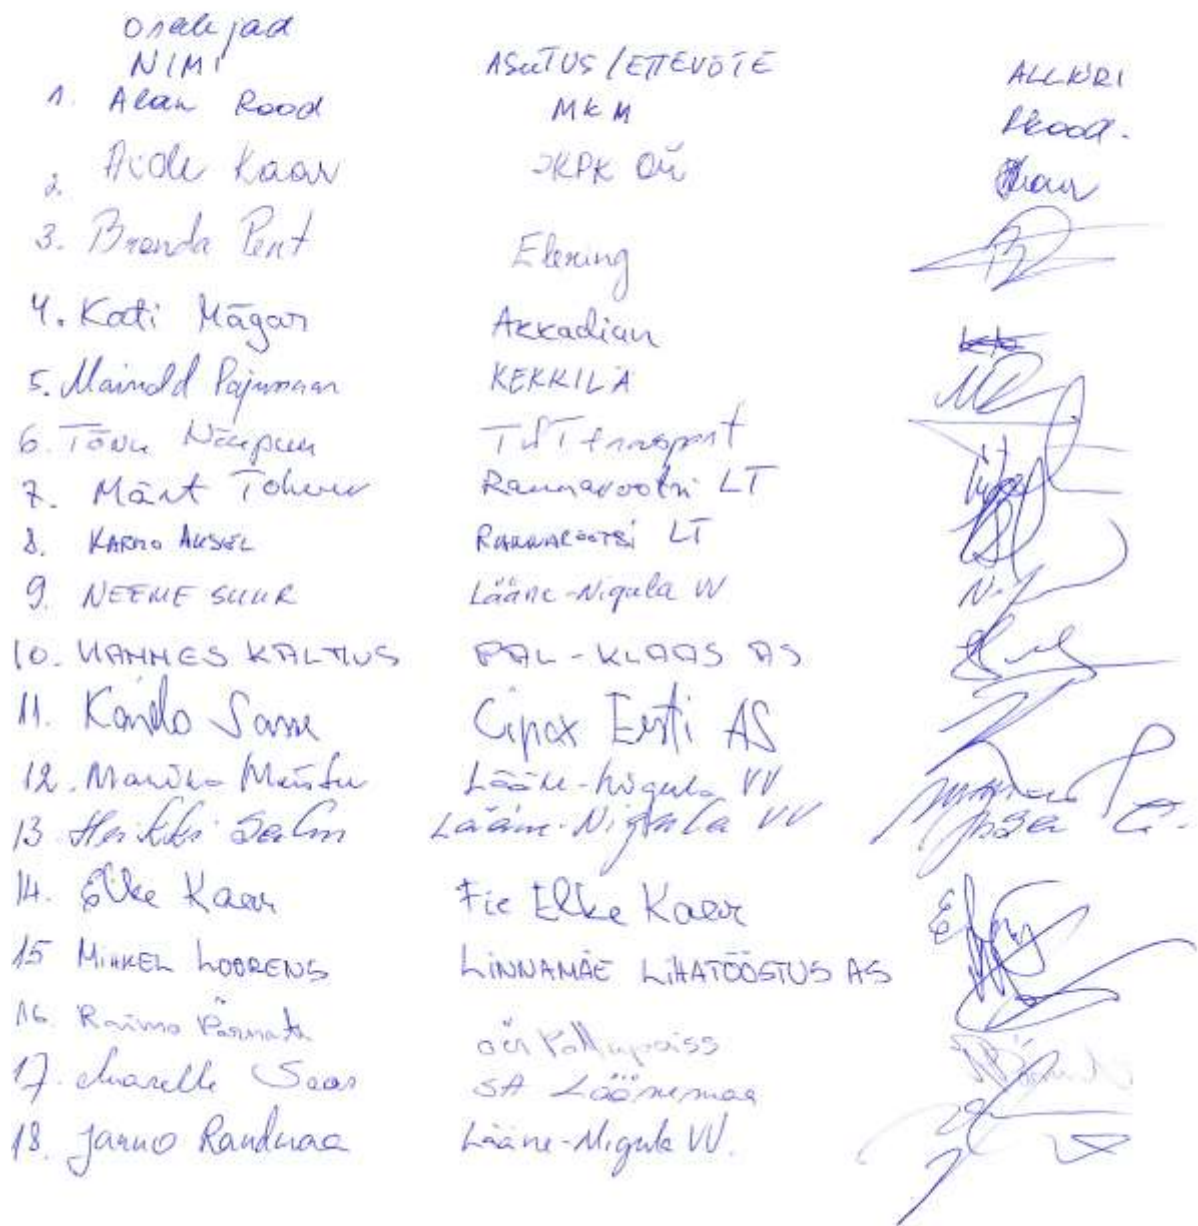 Osalejad
NIMI ASUTUS/ETTEVÕTE ALLKIRI
1. Alan Rood MKM ARood.
2. Aide Kaar JKPK OÜ Kaar
3. Brenda Pent Elering
4. Kati Mägar Akkadian
5. Mainold Pajumaa KEKKILÄ
6. Tõnu TST transport
7. Märt Rannarootsi LT
8. KARMO AKSEL RANNAROOTSI LT
9. NEEME SUUR Lääne-Nigula VV
10. HANNES KALTIUS PAL-KLAAS AS
11. Kando Cipax Eesti AS
12. Marika Lääne-Nigula VV
13 Heikki Salm Lääne-Nigula VV
14. Elke Kaar Fie Elke Kaar
15 MIHKEL LOORENS LINNAMÄE LIHATÖÖSTUS AS
16. Raimo Pärnata OÜ Põllupoiss
17. Saar SA Läänemaa
18. Jarno Randmaa Lääne-Nigula VV.